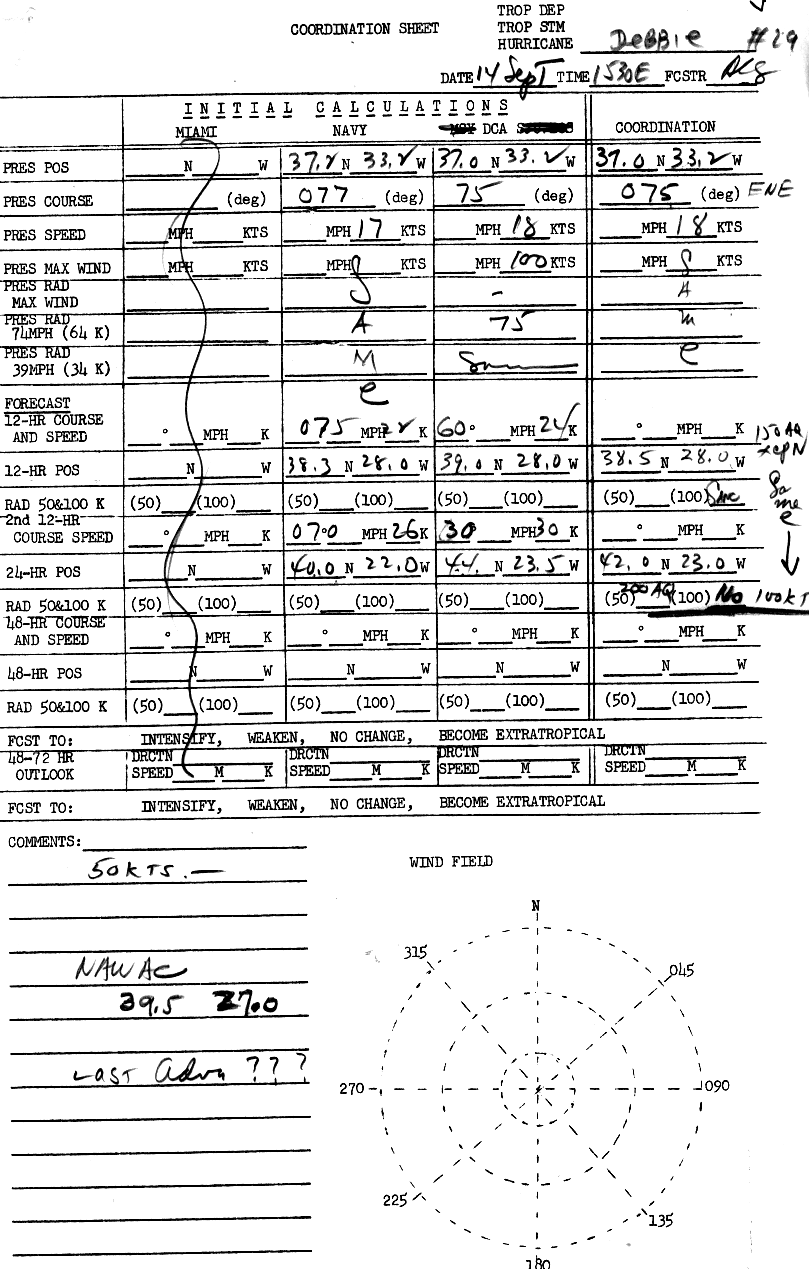 TROP DEP
COORDINATION SHEET TROP STM
HURRICANE DeBBie #29
DATE 14 Sept TIME 1530E FCSTR
INITIAL CALCULATIONS
MIAMI NAVY DCA COORDINATION
PRES POS N W 37.2 N 33.2 W 37.0 N 33.2 W 37.0 N 33.2 W
PRES COURSE (deg) 077 (deg) 75 (deg) 075 (deg) ENE
PRES SPEED MPH KTS MPH 17 KTS MPH 18 KTS MPH 18 KTS
PRES MAX WIND MPH KTS MPH S KTS MPH 100 KTS MPH S KTS
PRES RAD
MAX WIND A - A
PRES RAD
74MPH (64 K) 75 m
PRES RAD
39MPH (34 K) M Same e
e
FORECAST
12-HR COURSE
AND SPEED ° MPH K 075 MPH 22 K 60° MPH 24 K ° MPH K 150 AQ
12-HR POS N W 38.3 N 28.0 W 39.0 N 28.0 W 38.5 N 28.0 W
RAD 50&100 K (50) (100) (50) (100) (50) (100) (50) (100) Same
2nd 12-HR
COURSE SPEED ° MPH K 070 MPH 26 K 30 MPH 30 K ° MPH K
24-HR POS N W 40.0 N 22.0 W 44. N 23.5 W 42.0 N 23.0 W
RAD 50&100 K (50) (100) (50) (100) (50) (100) (50) 200 AQ (100) No 100KT
48-HR COURSE
AND SPEED ° MPH K ° MPH K ° MPH K ° MPH K
48-HR POS N W N W N W N W
RAD 50&100 K (50) (100) (50) (100) (50) (100) (50) (100)
FCST TO: INTENSIFY, WEAKEN, NO CHANGE, BECOME EXTRATROPICAL
48-72 HR DRCTN DRCTN DRCTN DRCTN
OUTLOOK SPEED M K SPEED M K SPEED M K SPEED M K
FCST TO: INTENSIFY, WEAKEN, NO CHANGE, BECOME EXTRATROPICAL
COMMENTS:
50KTS.—
WIND FIELD
N
315
045
NAWAC
39.5 27.0
Last Adva ???
270
090
225
135
180